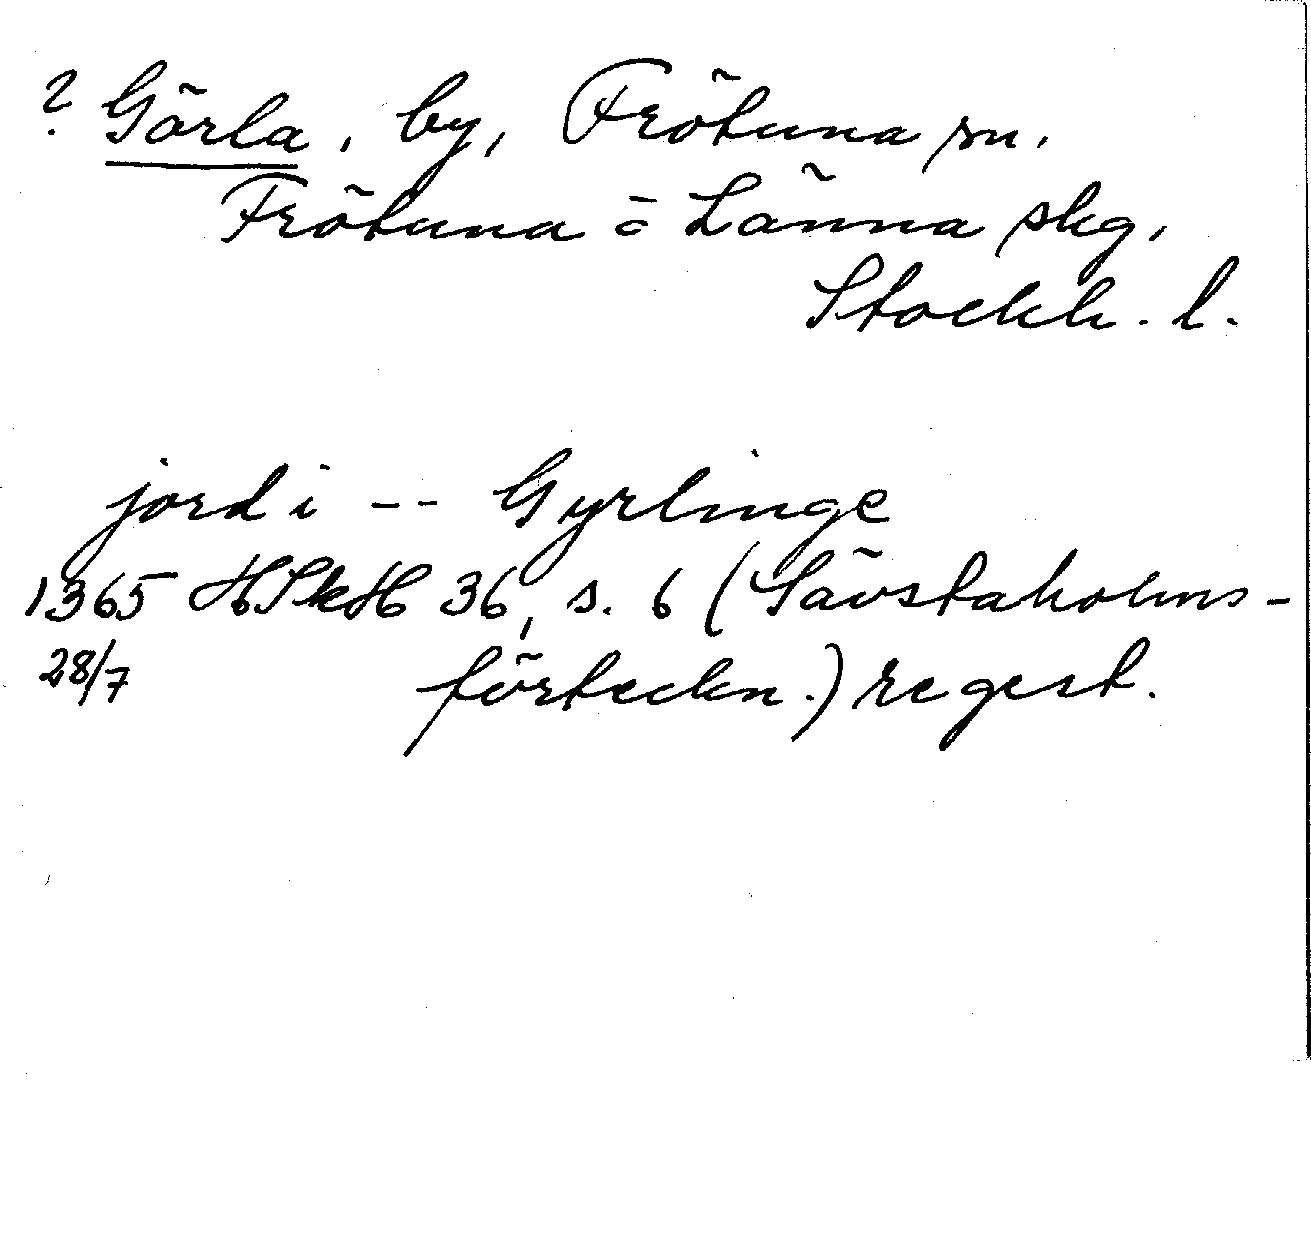 ? Görla, by, Frötuna sn.
Frötuna o Länna skg.
Stockh. l.
jord i -- Gyrlinge
1365 HSkH 36, s. 6 (Sävstaholms-
28/7 förteckn.) regest.